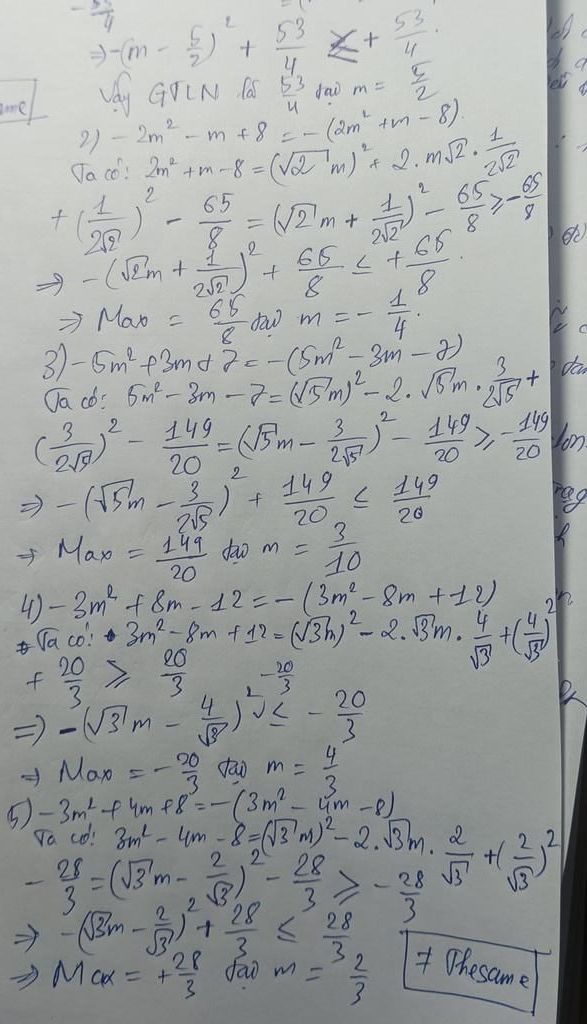 -53/4
⇒ -(m - 5/2)² + 53/4 ≤ + 53/4.
Vậy GTLN là 53/4 tại m = 5/2
2) -2m² - m + 8 = -(2m² + m - 8)
Ta có: 2m² + m - 8 = (√2 m)² + 2. m√2 . 1/2√2
+ (1/2√2)² - 65/8 = (√2 m + 1/2√2)² - 65/8 ≥ -65/8
⇒ -(√2m + 1/2√2)² + 65/8 ≤ + 65/8.
⇒ Max = 65/8 tại m = -1/4.
3) -5m² + 3m + 7 = -(5m² - 3m - 7)
Ta có: 5m² - 3m - 7 = (√5m)² - 2. √5m . 3/2√5 +
(3/2√5)² - 149/20 = (√5m - 3/2√5)² - 149/20 ≥ -149/20
⇒ -(√5m - 3/2√5)² + 149/20 ≤ 149/20
⇒ Max = 149/20 tại m = 3/10
4) -3m² + 8m - 12 = -(3m² - 8m + 12)
Ta có: 3m² - 8m + 12 = (√3m)² - 2. √3m . 4/√3 + (4/√3)²
+ 20/3 ≥ 20/3
⇒ -(√3 m - 4/√3)² - 20/3 ≤ -20/3
⇒ Max = -20/3 tại m = 4/3
5) -3m² + 4m + 8 = -(3m² - 4m - 8)
Ta có: 3m² - 4m - 8 = (√3 m)² - 2. √3m . 2/√3 + (2/√3)²
- 28/3 = (√3m - 2/√3)² - 28/3 ≥ -28/3
⇒ -(√3m - 2/√3)² + 28/3 ≤ 28/3
⇒ Max = +28/3 tại m = 2/3
7 Thesame